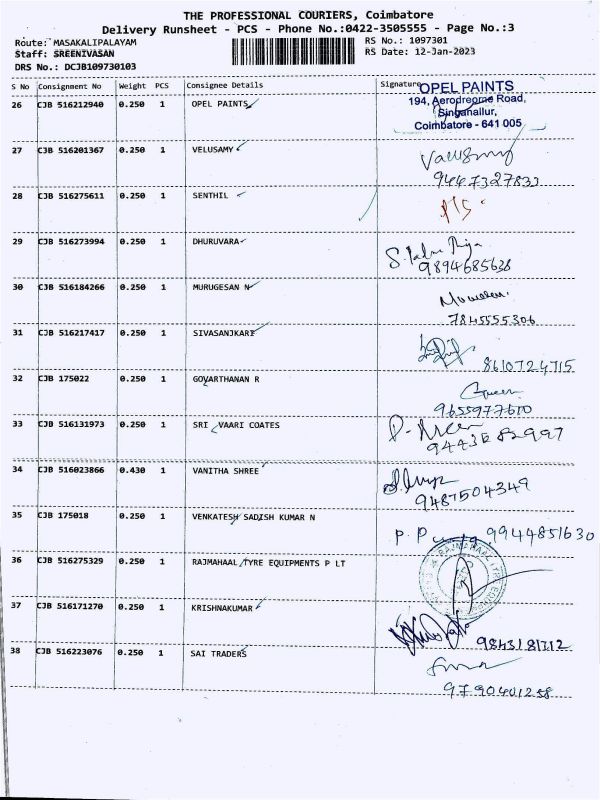 THE PROFESSIONAL COURIERS, Coimbatore
Delivery Runsheet - PCS - Phone No.:0422-3505555 - Page No.:3
Route: MASAKALIPALAYAM
RS No.: 1097301
Staff: SREENIVASAN
RS Date: 12-Jan-2023
DRS No.: DCJB109730103
S No Consignment No Weight PCS Consignee Details Signature
26 CJB 516212940 0.250 1 OPEL PAINTS
OPEL PAINTS
194, Aerodreome Road,
Singanallur,
Coimbatore - 641 005
27 CJB 516201367 0.250 1 VELUSAMY
9447327833
28 CJB 516275611 0.250 1 SENTHIL
29 CJB 516273994 0.250 1 DHURUVARA
9894685638
30 CJB 516184266 0.250 1 MURUGESAN N
7845555306
31 CJB 516217417 0.250 1 SIVASANJKARI
8610724715
32 CJB 175022 0.250 1 GOVARTHANAN R
9655977670
33 CJB 516131973 0.250 1 SRI VAARI COATES
34 CJB 516023866 0.430 1 VANITHA SHREE
9487504349
35 CJB 175018 0.250 1 VENKATESH SADISH KUMAR N
9944851630
36 CJB 516275329 0.250 1 RAJMAHAAL TYRE EQUIPMENTS P LT
37 CJB 516171270 0.250 1 KRISHNAKUMAR
9843181712
38 CJB 516223076 0.250 1 SAI TRADERS
9790401258